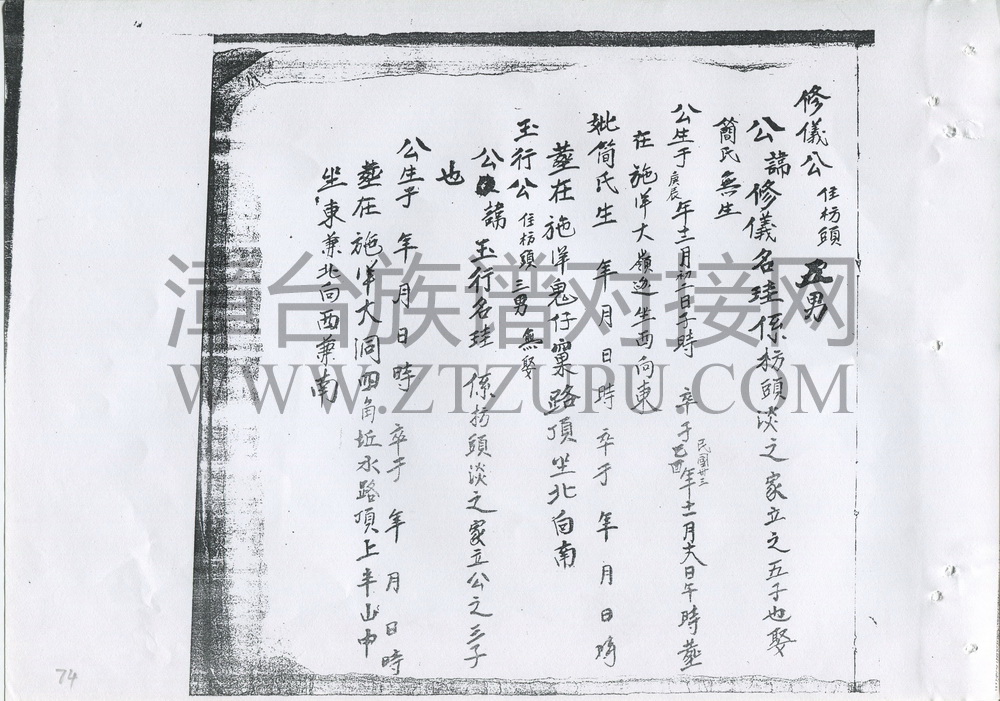 修儀公 住枋頭 五男
公諱修儀名珪係枋頭淡之家立之五子也娶
簡氏無生
公生于庚辰年十二月初一日子時 卒于民國廿三年十一月十六日午時葬
在施洋大嶺边坐西向東
妣簡氏生 年 月 日 時 卒于 年 月 日 時
葬在施洋鬼仔窠路頂坐北向南
玉行公 住枋頭 三男 無娶
公諱玉行名珪 係枋頭淡之家立公之三子
也
公生于 年 月 日 時 卒于 年 月 日 時
葬在施洋大洞四角坵水路頂上半山中
坐東兼北向西兼南
74
漳台族谱对接网
WWW.ZTZUPU.COM